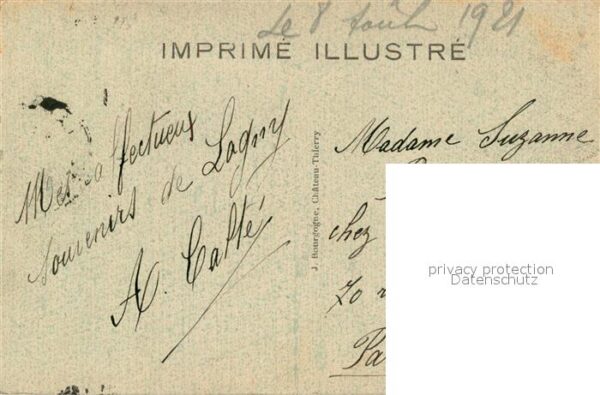 Le 8 Août 1921
IMPRIMÉ ILLUSTRÉ
Mes affectueux
souvenirs de Lagny
J. Bourgogne, Château-Thierry
Madame Suzanne
chez
70
Pa
privacy protection
Datenschutz